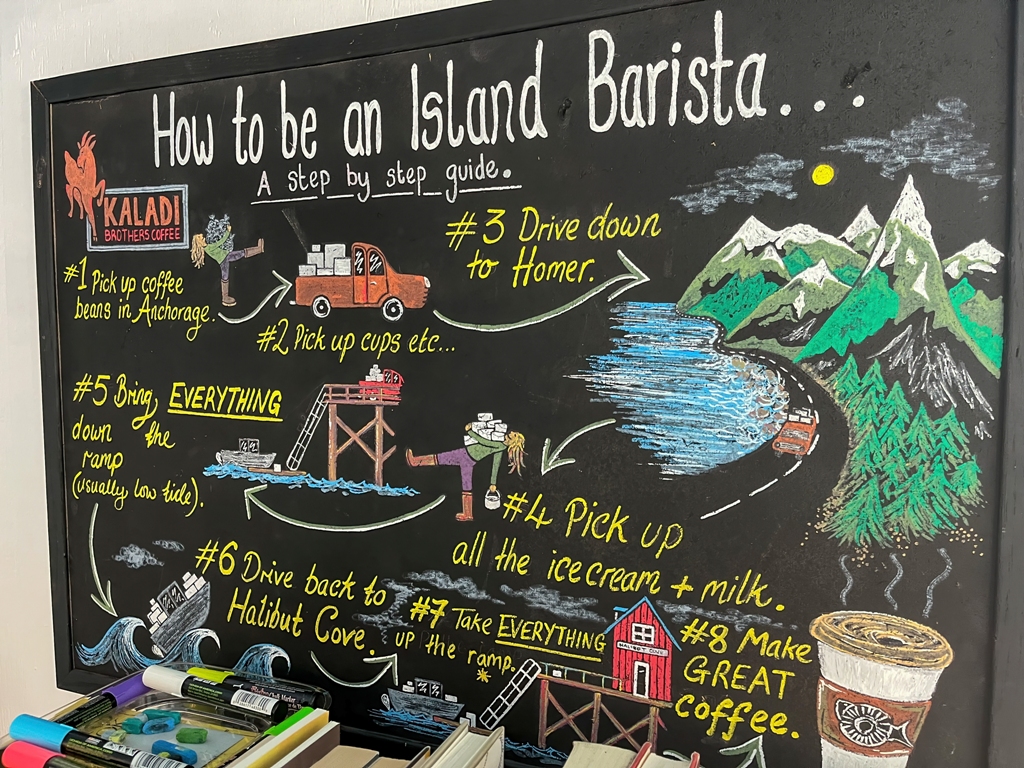 How to be an Island Barista...
A step by step guide.
KALADI
BROTHERS COFFEE
#1 Pick up coffee
beans in Anchorage.
#2 Pick up cups etc...
#3 Drive down
to Homer.
#4 Pick up
all the ice cream + milk.
#5 Bring EVERYTHING
down the
ramp
(usually low tide).
#6 Drive back to
Halibut Cove.
#7 Take EVERYTHING
up the ramp.
HALIBUT COVE
#8 Make
GREAT
coffee.